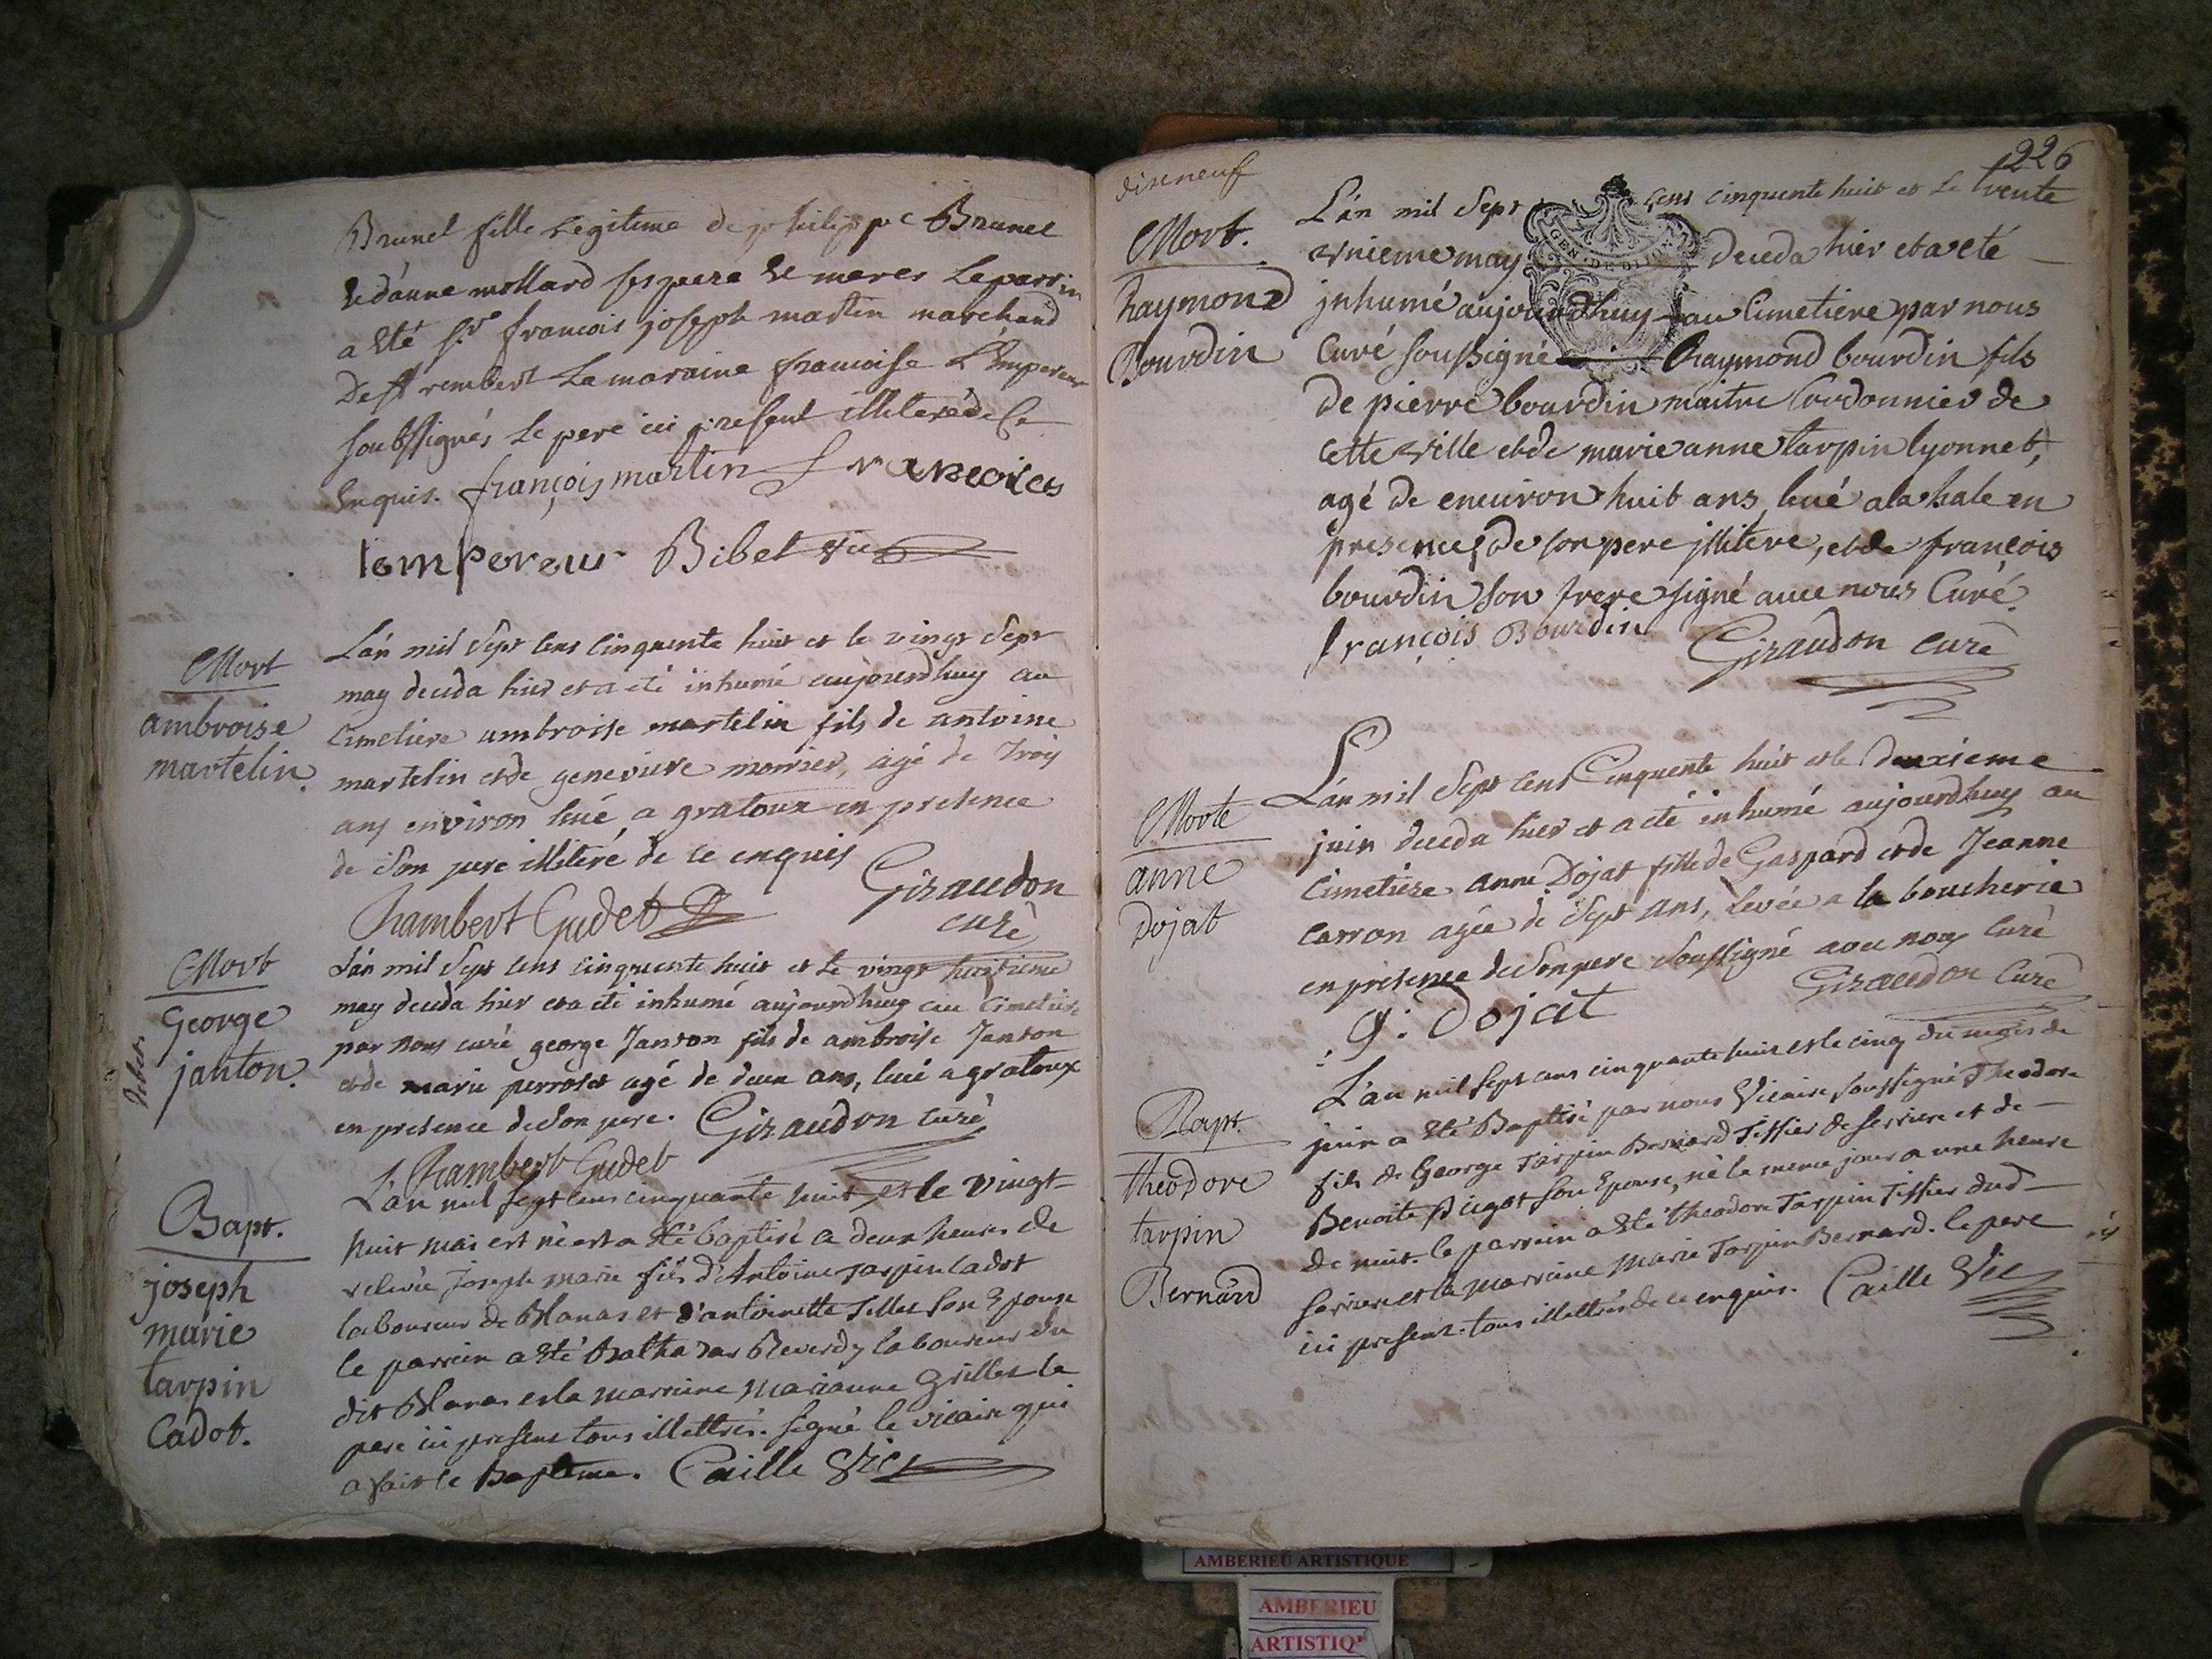 Brunel fille legitime de philippe Brunel
et d'anne mollard ses pere et meres le parrin
a eté sr. francois joseph martin marchand
de st rembert la maraine francoise L'Empereur
soubssignés le pere ici present illiteré de Ce
Enquis. françois martin francoices
lempereur Bibet vic
Mort
ambroise
martelin.
L'an mil sept cens cinquente huit et le vingt sept
may deceda hier et a eté inhumé aujourdhuy au
cimetiere ambroise martelin fils de antoine
martelin et de genevieve monier, agé de trois
ans environ levé a gratoux en presence
de son pere illiteré de ce enquis
Giraudon
Chambert Gudet curé
Mort
George
janton.
L'an mil sept cens cinquente huit et le vingt huitieme
may deceda hier et a eté inhumé aujourdhuy au cimetiere
par nous curé george Janton fils de ambroise Janton
et de marie perroset agé de deux ans, levé a gratoux
en presence de son pere. Giraudon curé
Chambert Gudet
Bapt.
joseph
marie
tarpin
Cadot.
L'an mil sept cens cinquante huit et le vingt-
huit mai est né et a eté baptisé a deux heures de
relevée Joseph marie fils d'Antoine tarpin cadot
laboureur de Blanas et d'antoinette Tilles son Epouse
le parrein a eté Baltha zar Reverdy laboureur du
dit Blanas et la marreine Marianne Grilles le
pere ici present tous illettrés. signé le vicaire qui
a fait le Bapteme. Caille Vic
dixneuf
226
Mort.
Raymond
Bourdin
L'an mil sept cens cinquente huit et le trente
GEN. DE DIJON
vnieme may deceda hier et a eté
jnhumé aujourdhuy au Cimetiere par nous
Curé soussigné Raymond bourdin fils
de pierre bourdin maitre Cordonnier de
cette ville et de marie anne tarpin lyonnet,
agé de enuiron huit ans, leué a la hale en
presence de son pere jllitere, et de françois
bourdin son frere signé auec nous Curé.
françois Bourdin Giraudon curé
Morte
anne
Dojat
L'an mil sept cens Cinquente huit et le deuxieme
juin deceda hier et a eté inhumé aujourdhuy au
Cimetiere anne Dojat fille de Gaspard et de Jeanne
carron agée de sept ans, levée a la boucherie
en presence de son pere soussigné avec nous curé
g: Dojat Giraudon curé
Bapt.
theodore
tarpin
Bernard
L'an mil sept cens cinquante huit et le cinq du mois de
juin a eté Baptisé par nous Vicaire soussigné Theodore
fils de George Tarpin Bernard Tissier de serriere et de
Benoite Bigot son Epouse, né le meme jour a une heure
de nuit. le parrein a eté theodore Tarpin Tissier dud
serriere et la marreine Marie Tarpin Bernard. le pere
ici present. tous illettrés de ce enquis. Caille Vic
AMBERIEU ARTISTIQUE
AMBERIEU
ARTISTIQ